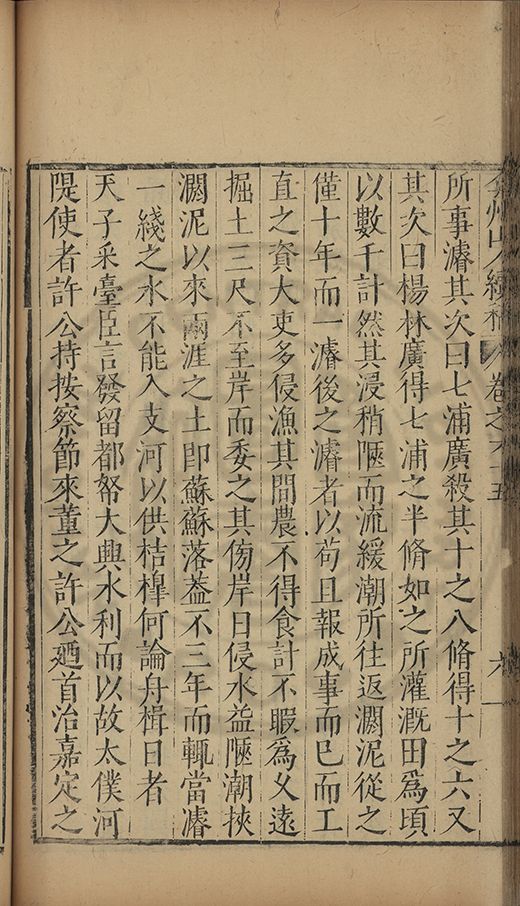 弇州山人續稿 卷之六十五 六
所事濬其次曰七浦廣殺其十之八脩得十之六又
其次曰楊林廣得七浦之半脩如之所灌溉田爲頃
以數千計然其浸稍陿而流緩潮所往返淤泥從之
僅十年而一濬後之濬者以苟且報成事而已而工
直之資大吏多侵漁其間農不得食計不暇爲乆遠
掘土三尺不至岸而委之其傍岸日侵水益陿潮挾
淤泥以來兩涯之土即蘇蘇落葢不三年而輒當濬
一綫之水不能入支河以供桔橰何論舟楫日者
天子采臺臣言發留都帑大興水利而以故太僕河
隄使者許公持按察節來董之許公廼首治嘉定之